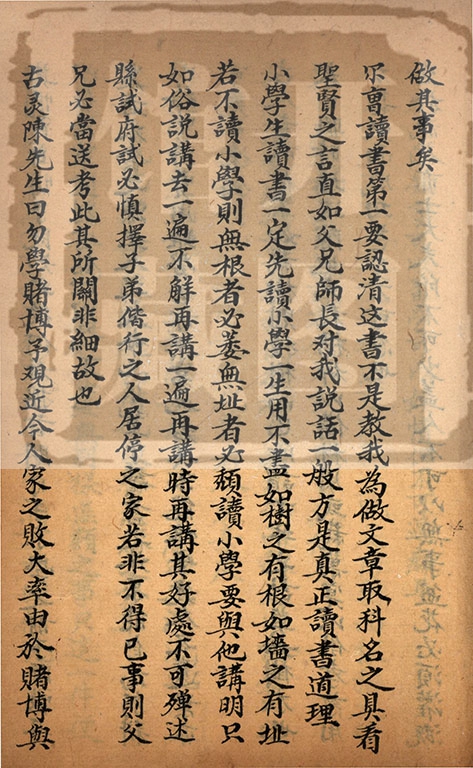 做其事矣
尔曹讀書第一要認清这書不是教我為做文章取科名之具看
聖賢之言直如父兄師長对我説話一般方是真正讀書道理
小學生讀書一定先讀小學一生用不盡如樹之有根如墻之有址
若不讀小學則無根者必萎無址者必頹讀小學要與他講明只
如俗説講去一遍不解再講一遍再講時再講其好處不可殫述
縣試府試必慎擇子弟偕行之人居停之家若非不得已事則父
兄必當送考此其所關非細故也
古灵陳先生曰勿學賭博予观近今人家之敗大率由於賭博與